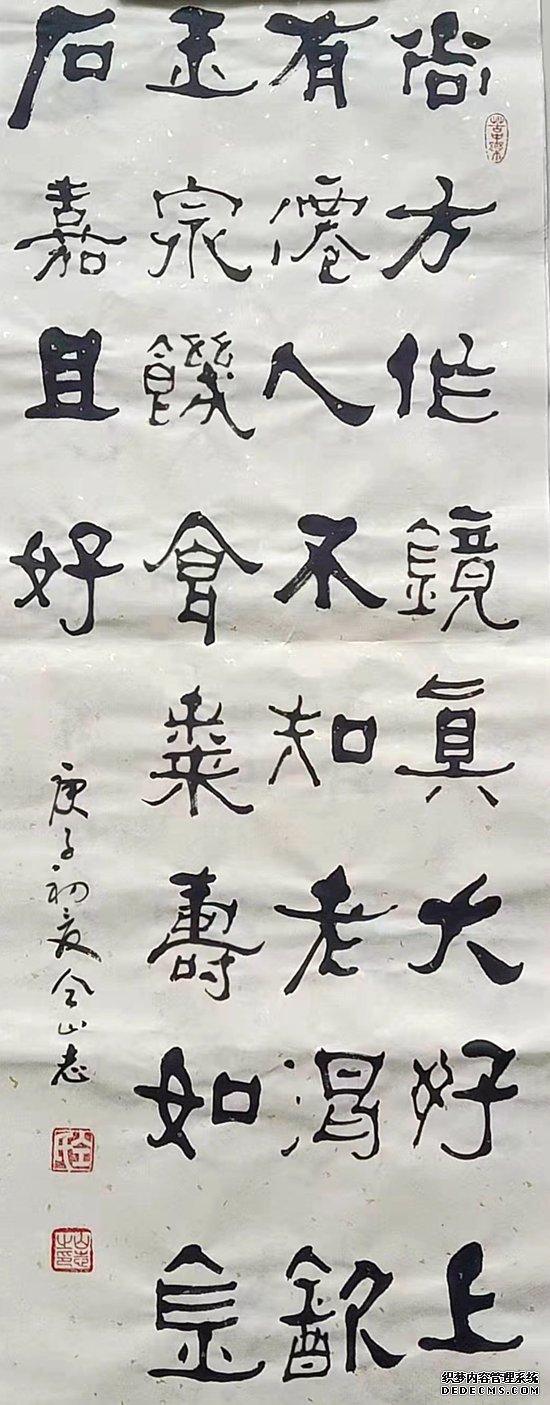 尚方作鏡眞大好上
有僊人不知老渴飲
玉泉饑食棗壽如金
石嘉且好
庚子初夏山志
织梦内容管理系统
DEDECMS.COM